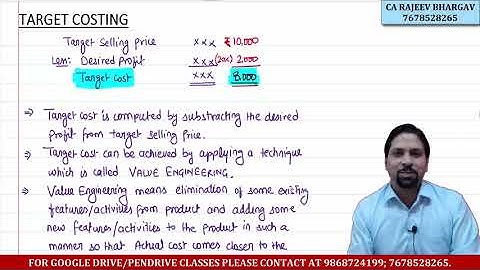 TARGET COSTING
CA RAJEEV BHARGAV
7678528265
Target Selling Price xxx ₹10,000
Less: Desired Profit xxx (20%) 2,000
Target Cost xxx 8,000
⇒ Target cost is computed by substracting the desired
Profit from target selling Price.
⇒ Target cost can be achieved by applying a technique
which is called VALUE ENGINEERING.
⇒ Value Engineering means elimination of some existing
features/activities from product and adding some
new features/activities to the product in such a
manner so that Actual cost comes closer to the
FOR GOOGLE DRIVE/PENDRIVE CLASSES PLEASE CONTACT AT 9868724199; 7678528265.